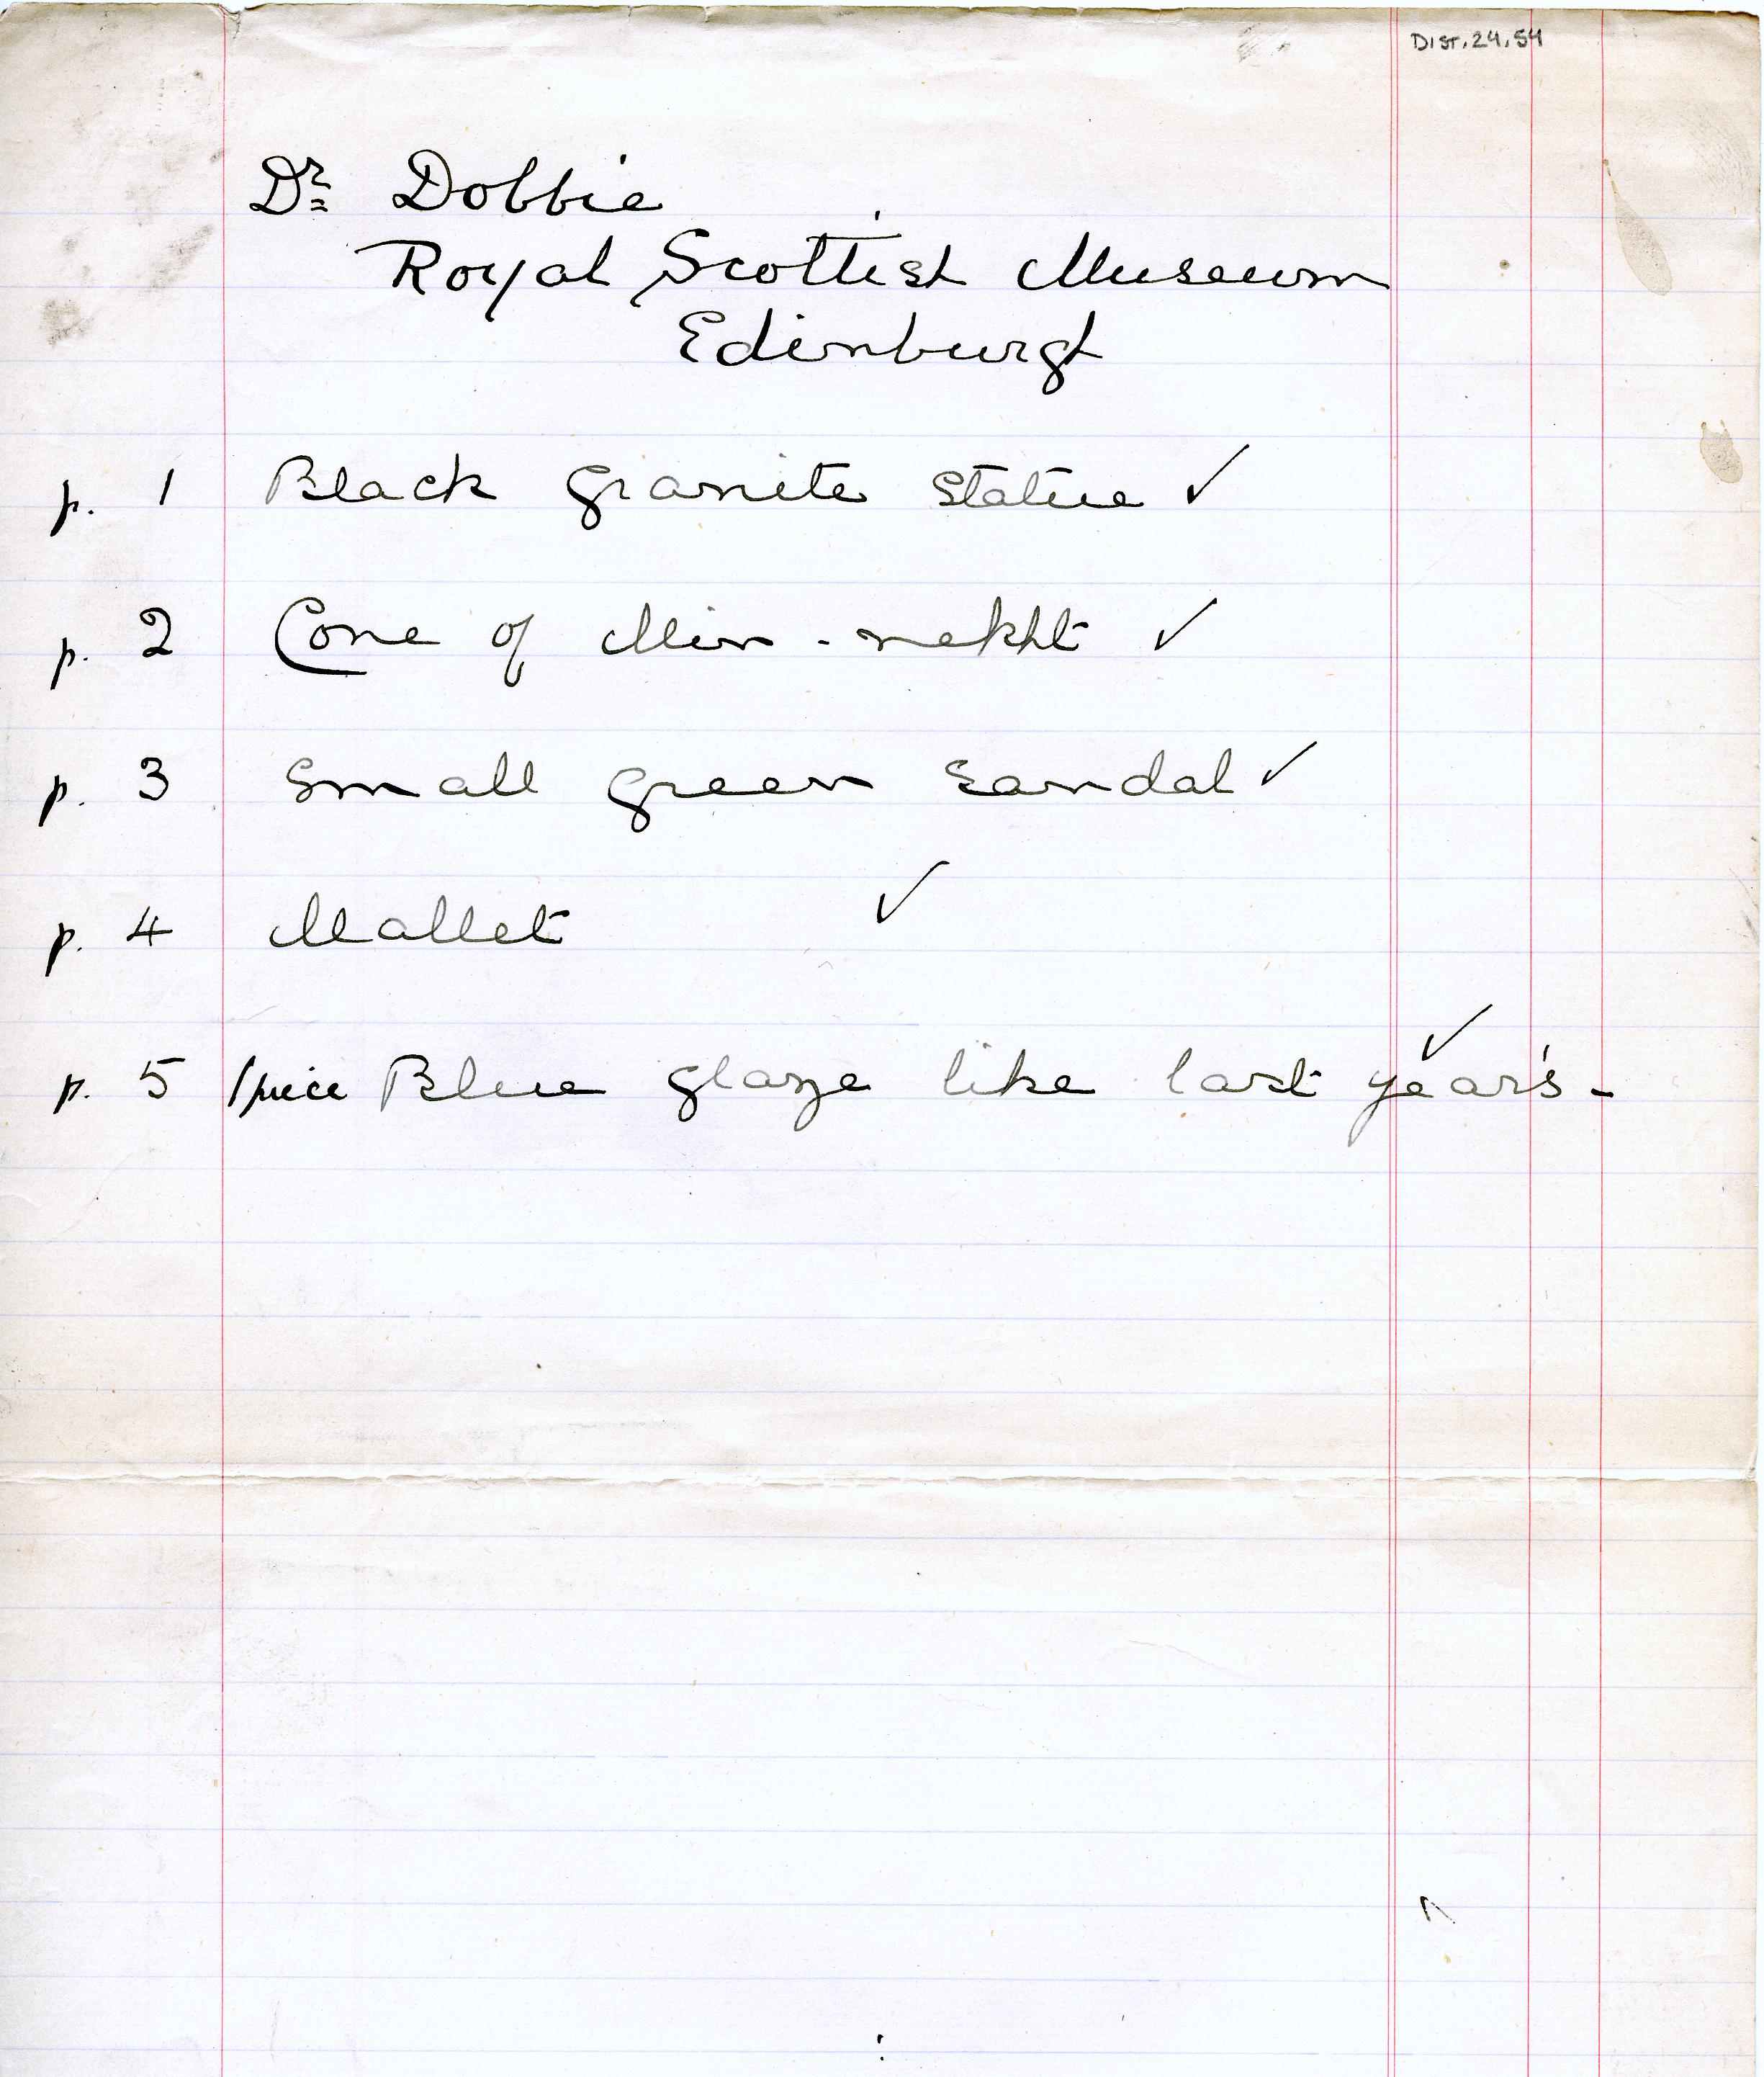 DIST.24.54
Dr Dobbie
Royal Scottish Museum
Edinburgh
p. 1 Black granite statue ✓
p. 2 Cone of Min-nekht ✓
p. 3 Small green sandal ✓
p. 4 Mallet ✓
p. 5 1 piece Blue glaze like last year's - ✓